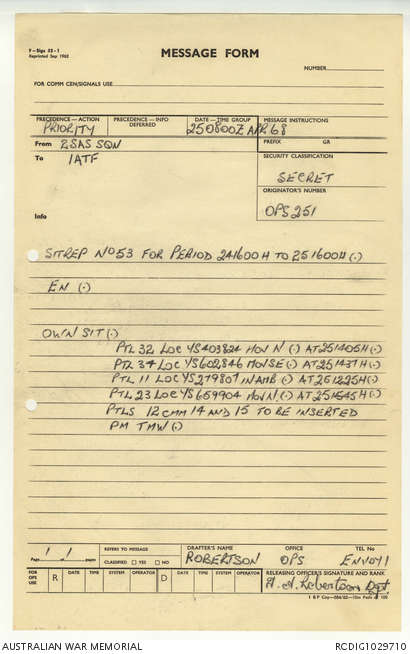 F-Sigs 52-1
Reprinted Sep 1965
MESSAGE FORM
NUMBER
FOR COMM CEN/SIGNALS USE
PRECEDENCE—ACTION
PRIORITY
PRECEDENCE—INFO
DEFERRED
DATE—TIME GROUP
250800Z APR 68
MESSAGE INSTRUCTIONS
From 2SAS SQN
PREFIX GR
To 1ATF
SECURITY CLASSIFICATION
SECRET
ORIGINATOR'S NUMBER
OPS 251
Info
SITREP No 53 FOR PERIOD 241600H TO 251600H (.)
EN (.)
OWN SIT (.)
PTL 32 LOC YS403824 MOV N (.) AT 251405H (.)
PTL 34 LOC YS602846 MOV SE (.) AT 251437H (.)
PTL 11 LOC YS279807 IN AMB (.) AT 251225H (.)
PTL 23 LOC YS659904 MOV N (.) AT 251545H (.)
PTLS 12 CMM 14 AND 15 TO BE INSERTED
PM TMW (.)
Page 1 of 1 pages
REFERS TO MESSAGE
CLASSIFIED YES NO
DRAFTER'S NAME
ROBERTSON
OFFICE
OPS
TEL No
ENVOY 1
FOR OPS USE
R DATE TIME SYSTEM OPERATOR D DATE TIME SYSTEM OPERATOR
RELEASING OFFICER'S SIGNATURE AND RANK
Robertson
AUSTRALIAN WAR MEMORIAL
RCDIG1029710